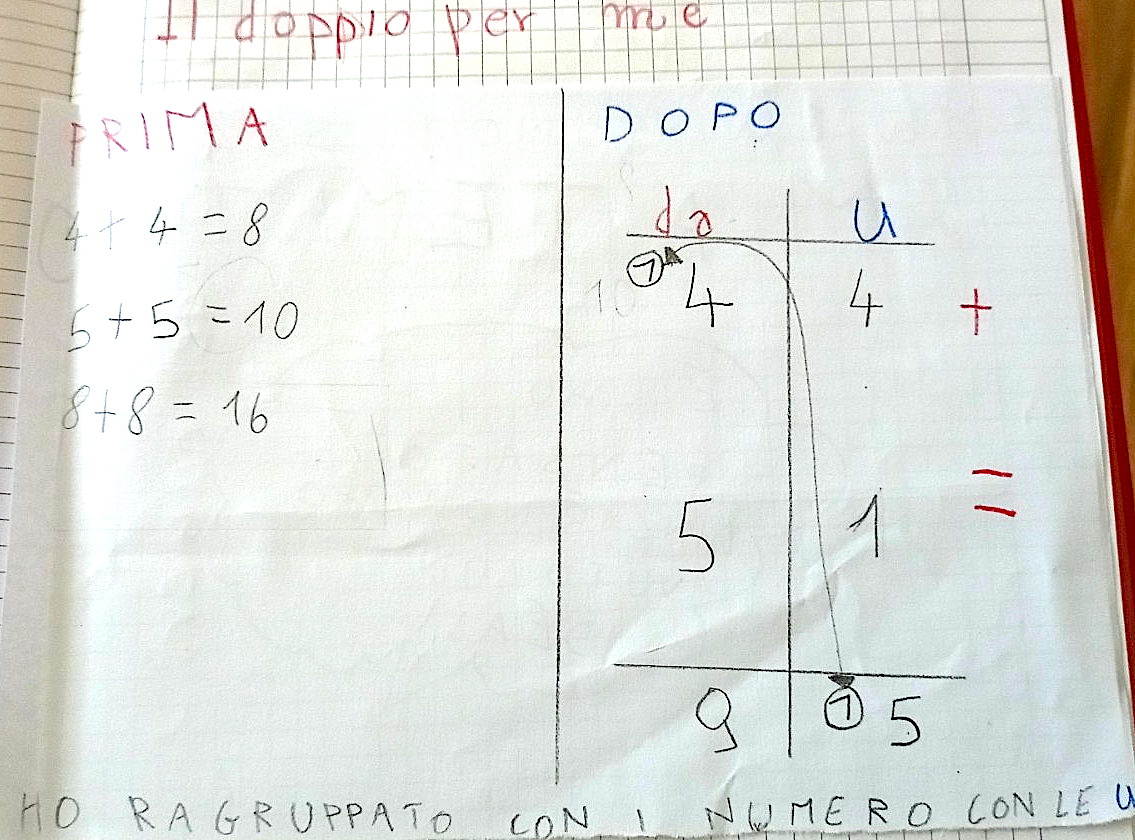 Il doppio per me
PRIMA
4 + 4 = 8
5 + 5 = 10
8+8 = 16
DOPO
da u
1
4 4 +
5 1 =
9 1 5
HO RAGRUPPATO CON I NUMERO CON LE U